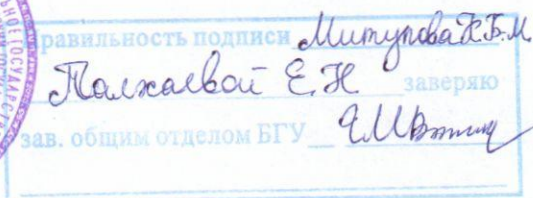 равильность подписи Митупова К.Б.М.
Палхаевой Е.Н заверяю
зав. общим отделом БГУ